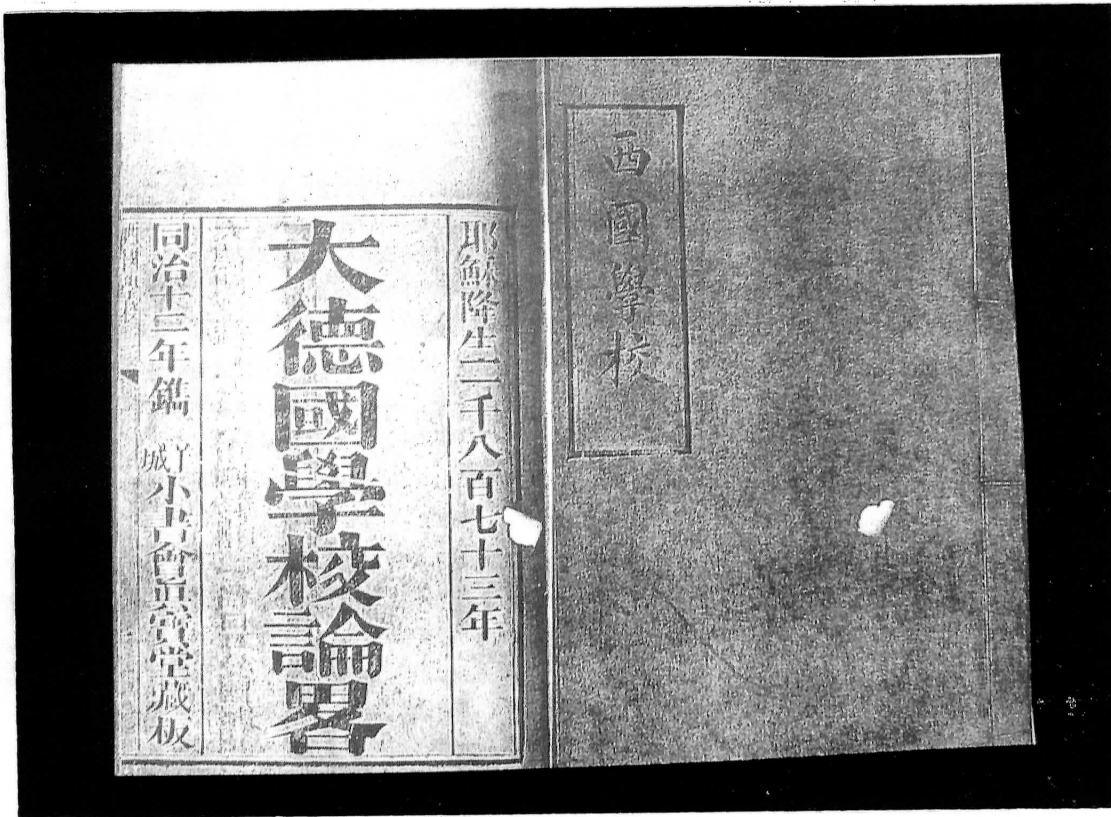 西國學校
耶穌降生一千八百七十三年
大德國學校論畧
同治十二年鐫 羊城小書會眞寶堂藏板